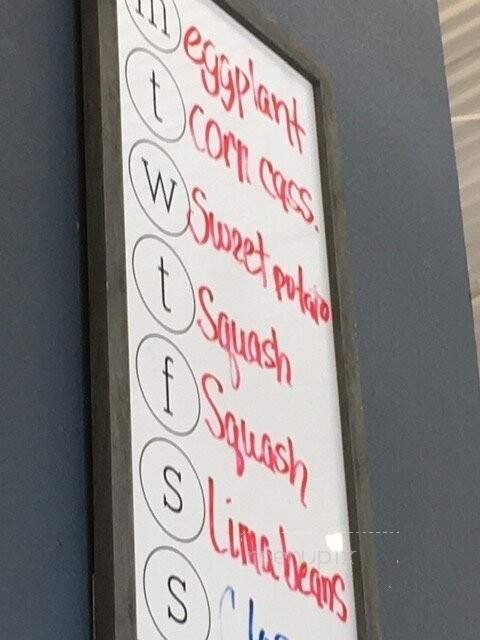 m eggplant
t corn cass.
w Sweet potato
t Squash
f Squash
s Lima beans
s